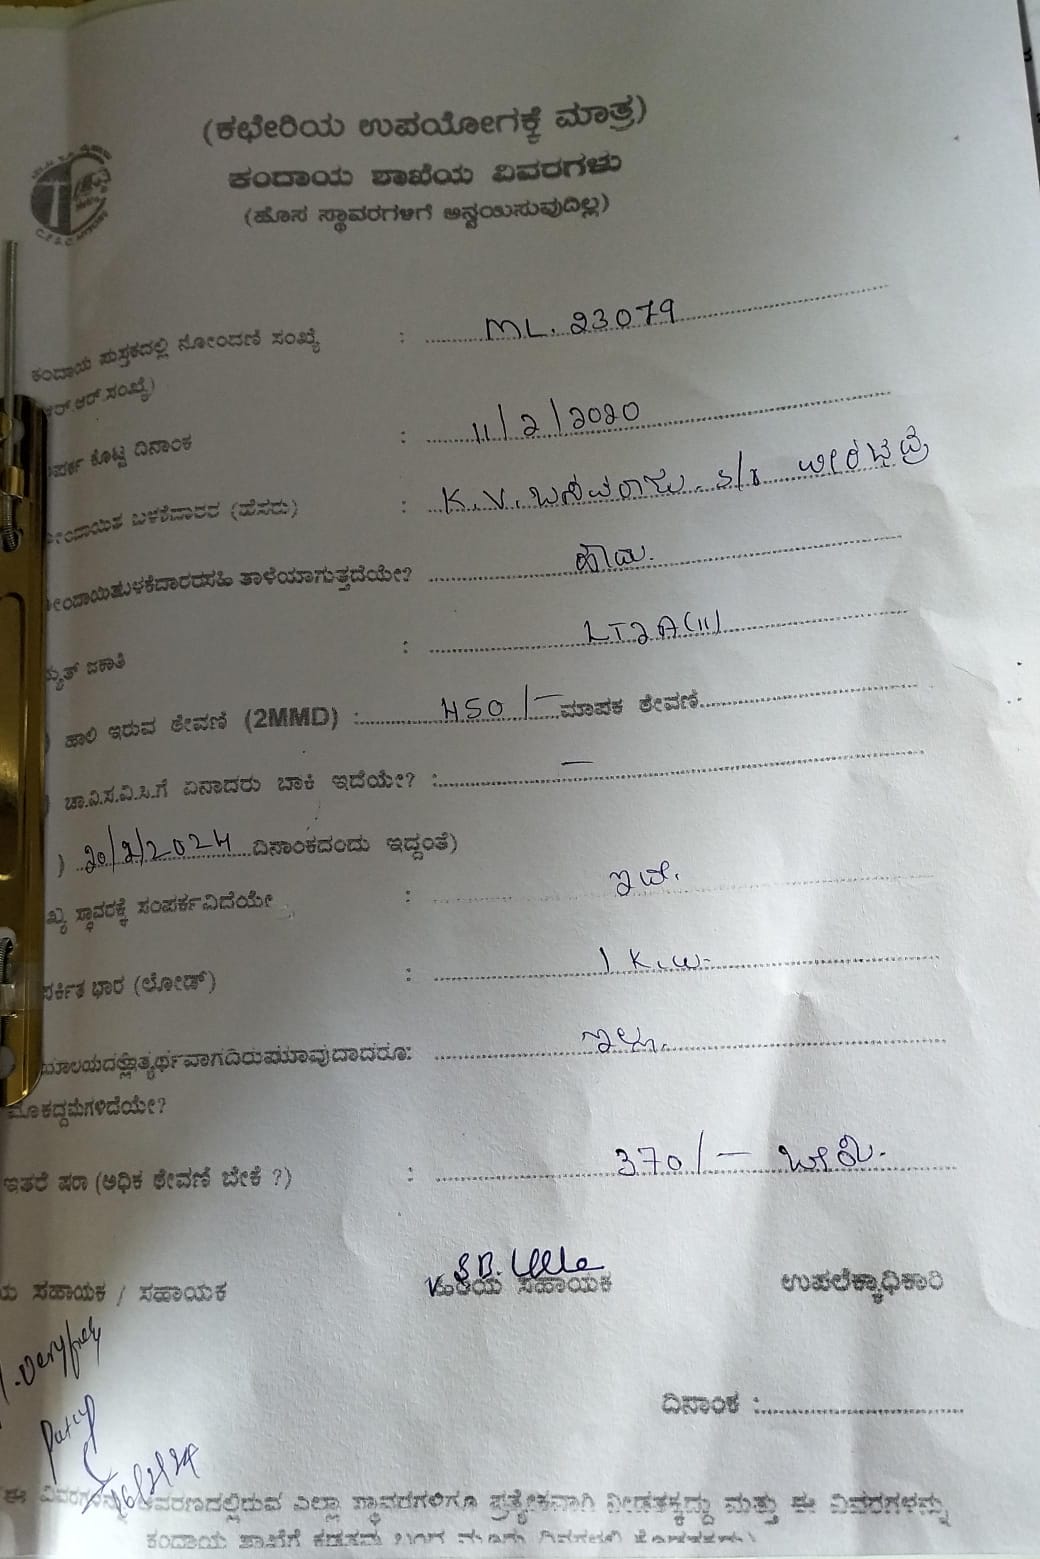 (ಕಛೇರಿಯ ಉಪಯೋಗಕ್ಕೆ ಮಾತ್ರ)
ಕಂದಾಯ ಶಾಖೆಯ ವಿವರಗಳು
(ಹೊಸ ಸ್ಥಾವರಗಳಿಗೆ ಅನ್ವಯಿಸುವುದಿಲ್ಲ)
ಕಂದಾಯ ಪುಸ್ತಕದಲ್ಲಿ ನೋಂದಣಿ ಸಂಖ್ಯೆ : ML. 23079
ರ್.ಆರ್.ಸಂಖ್ಯೆ)
ಪರ್ಕ ಕೊಟ್ಟ ದಿನಾಂಕ : 11/2/2020
ೋಂದಾಯಿತ ಬಳಕೆದಾರರ (ಹೆಸರು) : K.V. ಬಸವರಾಜು S/o ವೀರಭದ್ರ
ೋಂದಾಯಿತುಳಕೆದಾರರಸಹಿ ತಾಳೆಯಾಗುತ್ತದೆಯೇ? ಹೌದು.
ದ್ಯುತ್ ಜಕಾತಿ : LT2A(11)
) ಹಾಲಿ ಇರುವ ಠೇವಣಿ (2MMD) : 450/- ಮಾಪಕ ಠೇವಣಿ
) ಚಾ.ವಿ.ಸ.ವಿ.ಸಿ.ಗೆ ಏನಾದರು ಬಾಕಿ ಇದೆಯೇ? : —
) 20/2/2024 ದಿನಾಂಕದಂದು ಇದ್ದಂತೆ)
ಖ್ಯ ಸ್ಥಾವರಕ್ಕೆ ಸಂಪರ್ಕವಿದೆಯೇ : ಇದೆ.
ಪರ್ಕಿತ ಭಾರ (ಲೋಡ್) : 1 K.W.
ಯಾಲಯದಲ್ಲಿಇತ್ಯರ್ಥವಾಗದಿರುಷಯಾವುದಾದರೂ: ಇಲ್ಲ.
ಮೊಕದ್ದಮೆಗಳಿದೆಯೇ?
ಇತರೆ ಷರಾ (ಅಧಿಕ ಠೇವಣಿ ಬೇಕೆ ?) : 370/-
ಯ ಸಹಾಯಕ / ಸಹಾಯಕ ಹಿರಿಯ ಸಹಾಯಕ ಉಪಲೆಕ್ಕಾಧಿಕಾರಿ
ದಿನಾಂಕ :
ಈ ವಿವರಗಳನ್ನು ಆವರಣದಲ್ಲಿರುವ ಎಲ್ಲಾ ಸ್ಥಾವರಗಳಿಗೂ ಪ್ರತ್ಯೇಕವಾಗಿ ನೀಡತಕ್ಕದ್ದು ಮತ್ತು ಈ ವಿವರಗಳನ್ನು
ಕಂದಾಯ ಶಾಖೆಗೆ